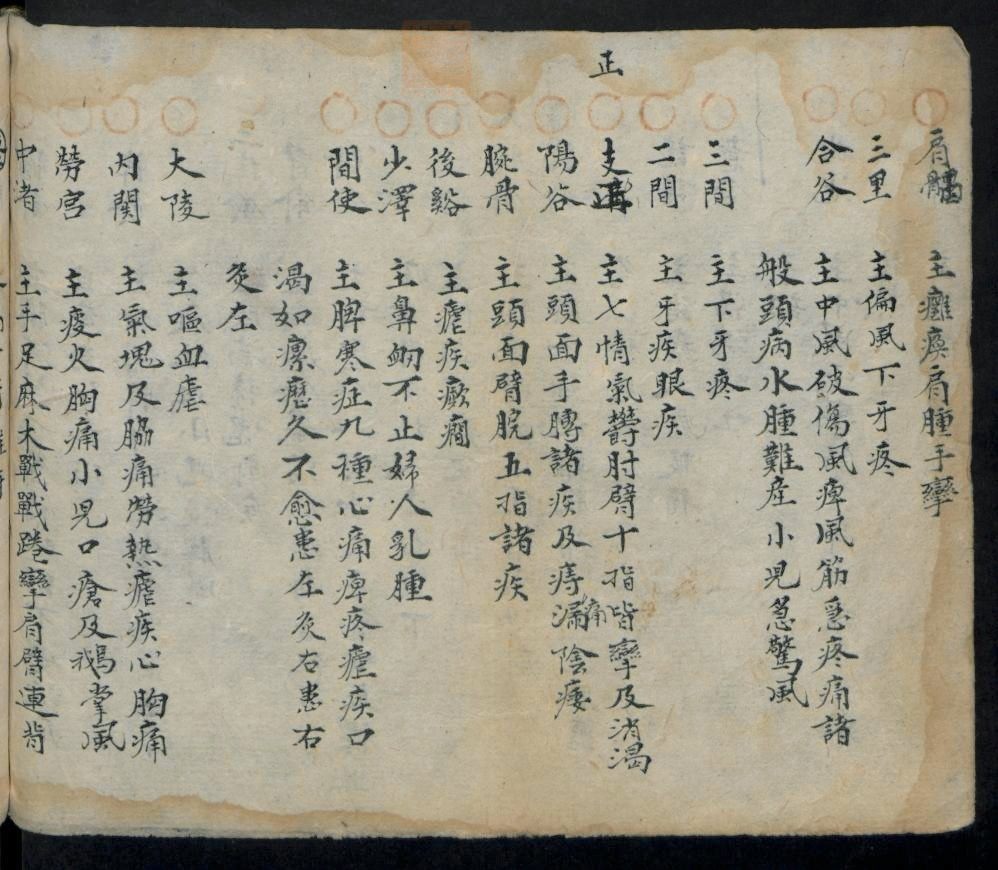 肩髃　主癱瘓肩腫手攣
三里　主偏風下牙疼
合谷　主中風破傷風痺風筋急疼痛諸
般頭病水腫難産小児急驚風
三間　主下牙疼
二間　主牙疾眼疾
正
支　主七情氣欝肘臂十指皆攣及消渴
痛
陽谷　主頭面手膊諸疾及痔漏陰痿
腕骨　主頭面臂脘五指諸疾
後谿　主瘧疾癲癇
少澤　主鼻衂不止婦人乳腫
間使　主脾寒症九種心痛痺疼瘧疾口
渴如瘰癧久不愈患左灸右患右
灸左
大陵　主嘔血瘧
内関　主氣塊及脇痛勞熱瘧疾心胸痛
勞宮　主痰火胸痛小児口瘡及鵝掌風
中渚　主手足麻木戰戰踡攣肩臂連背